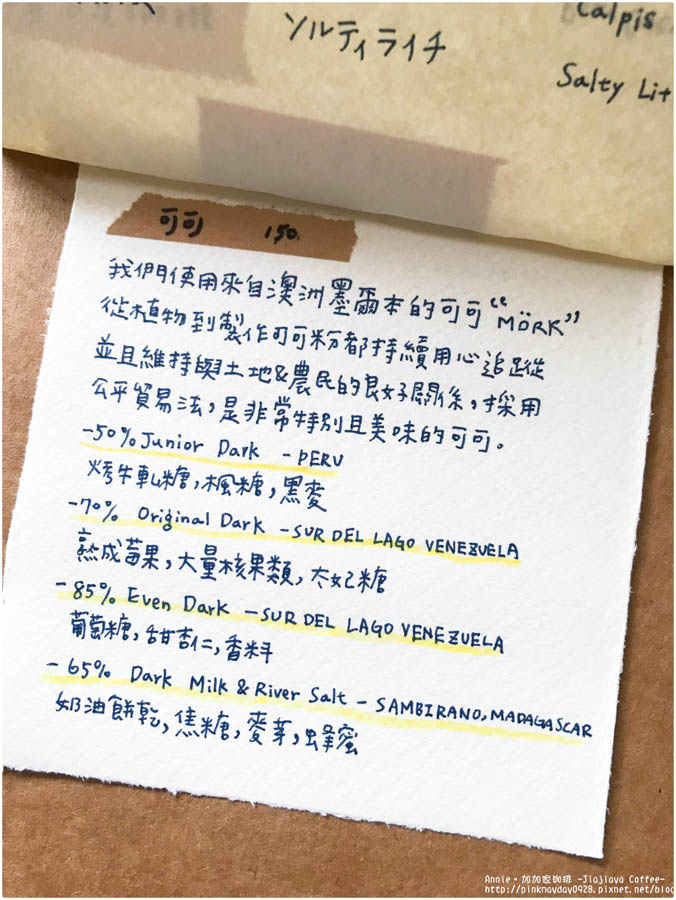 Calpis
ソルティライチ
Salty Lit
可可 150.
我們使用來自澳洲墨爾本的可可“MÖRK”
從植物到製作可可粉都持續用心追蹤
並且維持與土地&農民的良好關係,採用
公平貿易法,是非常特別且美味的可可。
-50% Junior Dark -PERU
烤牛軋糖,楓糖,黑麥
-70% Original Dark -SUR DEL LAGO VENEZUELA
熟成莓果,大量核果類,太妃糖
-85% Even Dark -SUR DEL LAGO VENEZUELA
葡萄糖,甜杏仁,香料
-65% Dark Milk & River Salt - SAMBIRANO, MADAGASCAR
奶油餅乾,焦糖,麥芽,蜂蜜
Annie。加加家珈琲 -Jiajiaya Coffee-
http://pinknayday0928.pixnet.net/blog